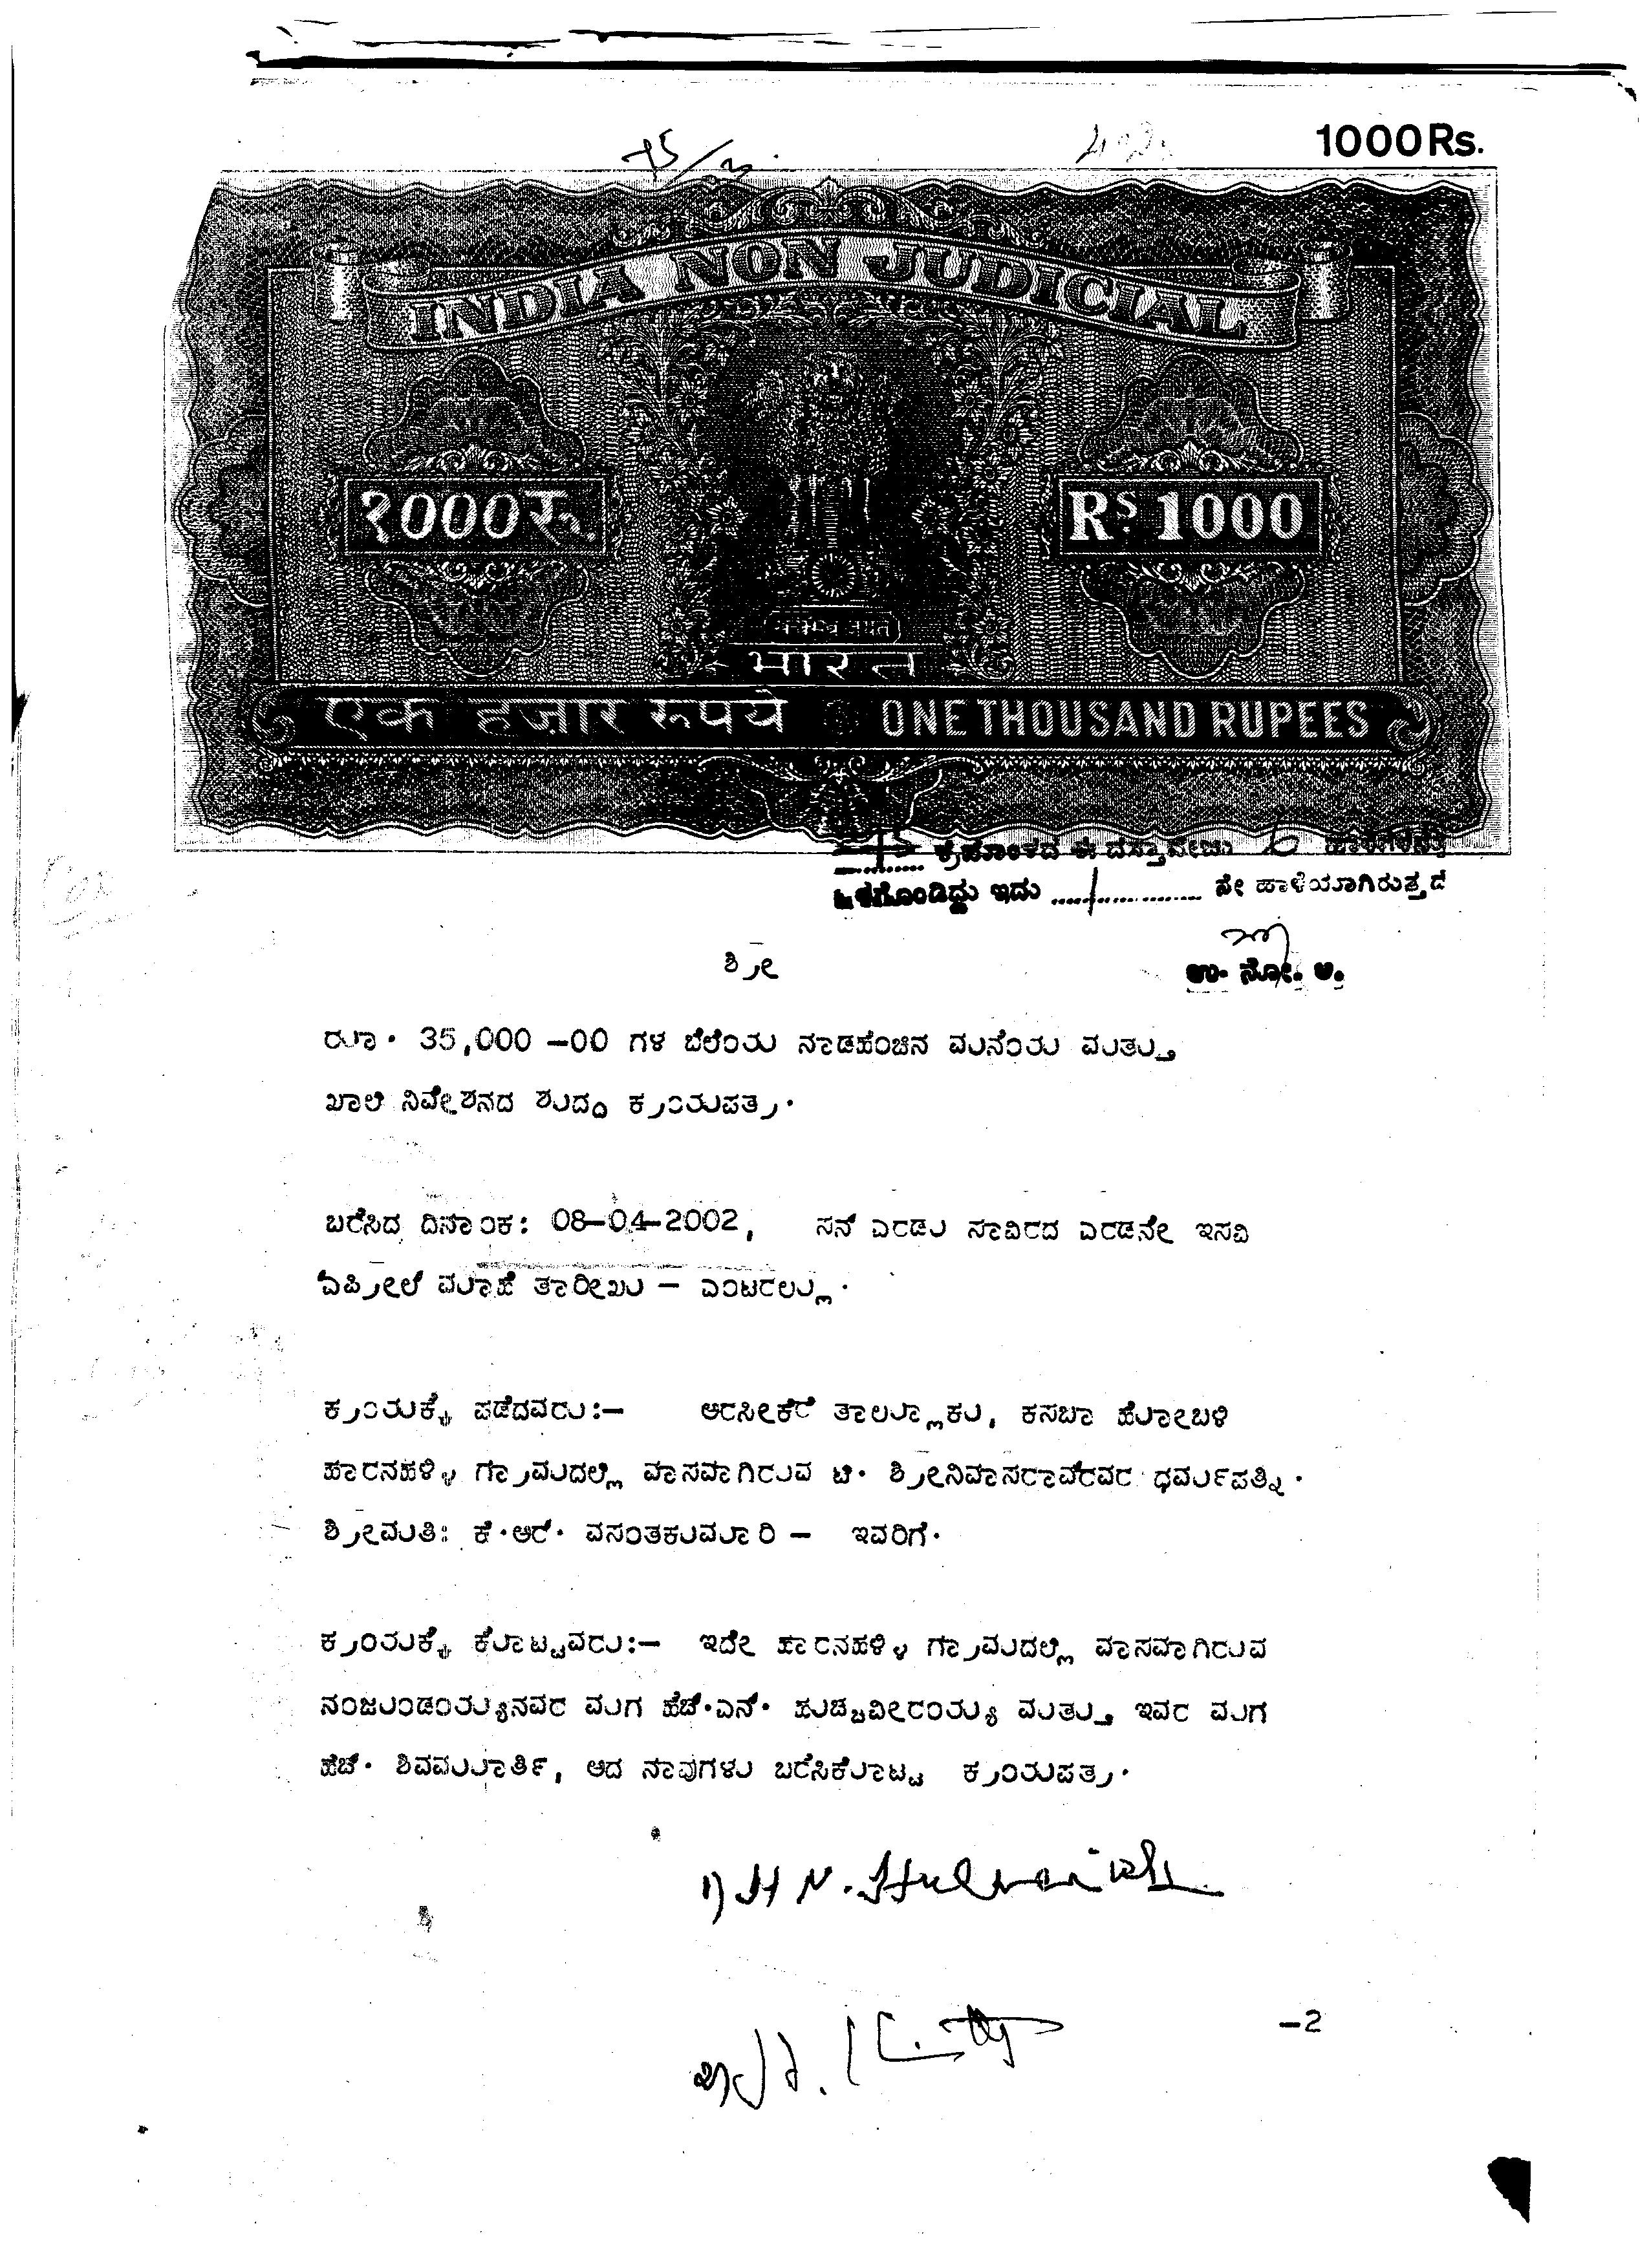 1000Rs.
INDIA NON JUDICIAL
१000रु. Rs. 1000
सत्यमेव जयते
भारत
एक हज़ार रुपये ONE THOUSAND RUPEES
ಕ್ರಮಾಂಕದ ಈ ದಸ್ತಾವೇಜು 6 ಹಾಳೆಗಳನ್ನು
ಒಳಗೊಂಡಿದ್ದು ಇದು ....1.... ನೇ ಹಾಳೆಯಾಗಿರುತ್ತದೆ
ಉ. ನೋ. ಅ.
ಶ್ರೀ
ರೂ. 35,000-00 ಗಳ ಬೆಲೆಯ ನಾಡಹೆಂಚಿನ ಮನೆಯ ಮತ್ತು
ಖಾಲಿ ನಿವೇಶನದ ಶುದ್ಧ ಕ್ರಯಪತ್ರ.
ಬರೆಸಿದ ದಿನಾಂಕ: 08-04-2002, ಸನ್ ಎರಡು ಸಾವಿರದ ಎರಡನೇ ಇಸವಿ
ಏಪ್ರೀಲ್ ಮಾಹೆ ತಾರೀಖು - ಎಂಟರಲ್ಲು.
ಕ್ರಯಕ್ಕೆ ಪಡೆದವರು:- ಅರಸೀಕೆರೆ ತಾಲ್ಲೂಕು, ಕಸಬಾ ಹೋಬಳಿ
ಹಾರನಹಳ್ಳಿ ಗ್ರಾಮದಲ್ಲಿ ವಾಸವಾಗಿರುವ ಟಿ. ಶ್ರೀನಿವಾಸರಾವ್‌ರವರ ಧರ್ಮಪತ್ನಿ.
ಶ್ರೀಮತಿ: ಕೆ.ಆರ್. ವಸಂತಕುಮಾರಿ - ಇವರಿಗೆ.
ಕ್ರಯಕ್ಕೆ ಕೊಟ್ಟವರು:- ಇದೇ ಹಾರನಹಳ್ಳಿ ಗ್ರಾಮದಲ್ಲಿ ವಾಸವಾಗಿರುವ
ನಂಜುಂಡಯ್ಯನವರ ಮಗ ಹೆಚ್.ಎನ್. ಹುಚ್ಚವೀರಯ್ಯ ಮತ್ತು ಇವರ ಮಗ
ಹೆಚ್. ಶಿವಮೂರ್ತಿ, ಆದ ನಾವುಗಳು ಬರೆಸಿಕೊಟ್ಟ ಕ್ರಯಪತ್ರ.
1) H N.
-2